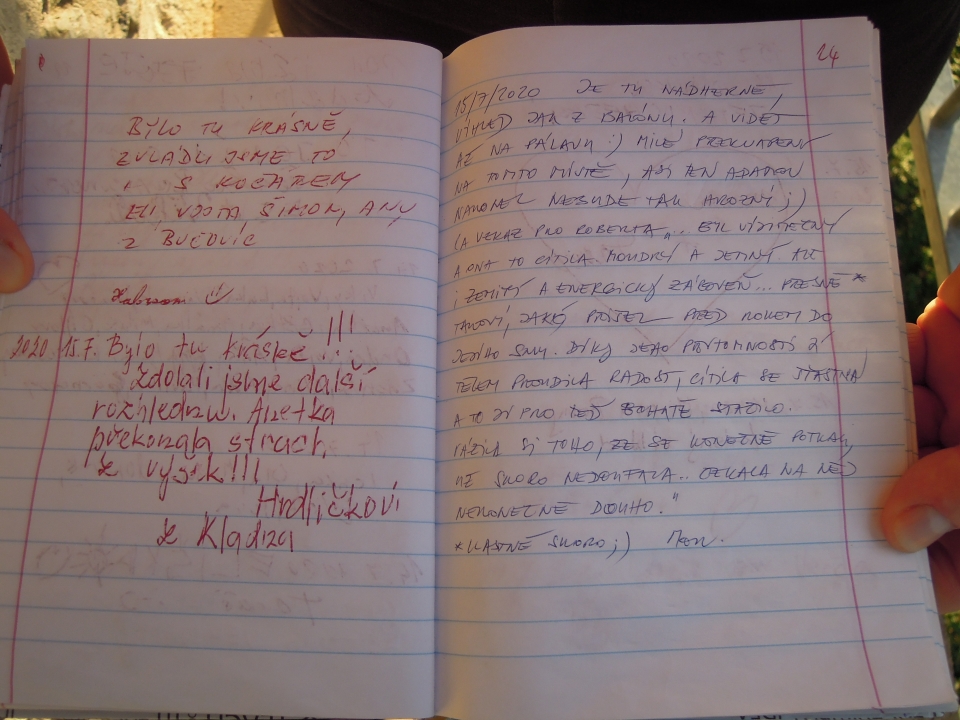 BYLO TU KRÁSNĚ,
ZVLÁDLI JSME TO
I S KOČÁREM
ELI, VOJTA ŠIMON, ANY
Z BUČOVIC
2020 15.7. Bylo tu krásně!!!
Zdolali jsme další
rozhlednu. Anetka
překonala strach
z výšek!!!
Hrdličkovi
z Kladna
24
15/7/2020 JE TU NÁDHERNĚ,
VÝHLED JAK Z BALÓNU. A VIDĚT
AŽ NA PÁLAVU :) MILÉ PŘEKVAPENÍ
NA TOMTO MÍSTĚ, ASI TEN
NAKONEC NEBUDE TAK HROZNÝ ;)
(A VZKAZ PRO ROBERTA „... BYL VÝJIMEČNÝ
A ONA TO CÍTILA. MOUDRÝ A JEMNÝ. ALE
I ZEMITÝ A ENERGICKÝ ZÁROVEŇ... PŘESNĚ *
TAKOVÝ, JAKÝ PŘIŠEL PŘED ROKEM DO
JEJÍHO SNU. DÍKY JEHO PŘÍTOMNOSTI JÍ
TĚLEM PROUDILA RADOST, CÍTILA SE ŠŤASTNÁ
A TO JÍ PRO TEĎ BOHATĚ STAČILO.
VÁŽILA SI TOHO, ŽE SE KONEČNĚ POTKALI,
UŽ SKORO NEDOUFALA.. ČEKALA NA NĚJ
NEKONEČNĚ DLOUHO."
*VLASTNĚ SKORO ;)